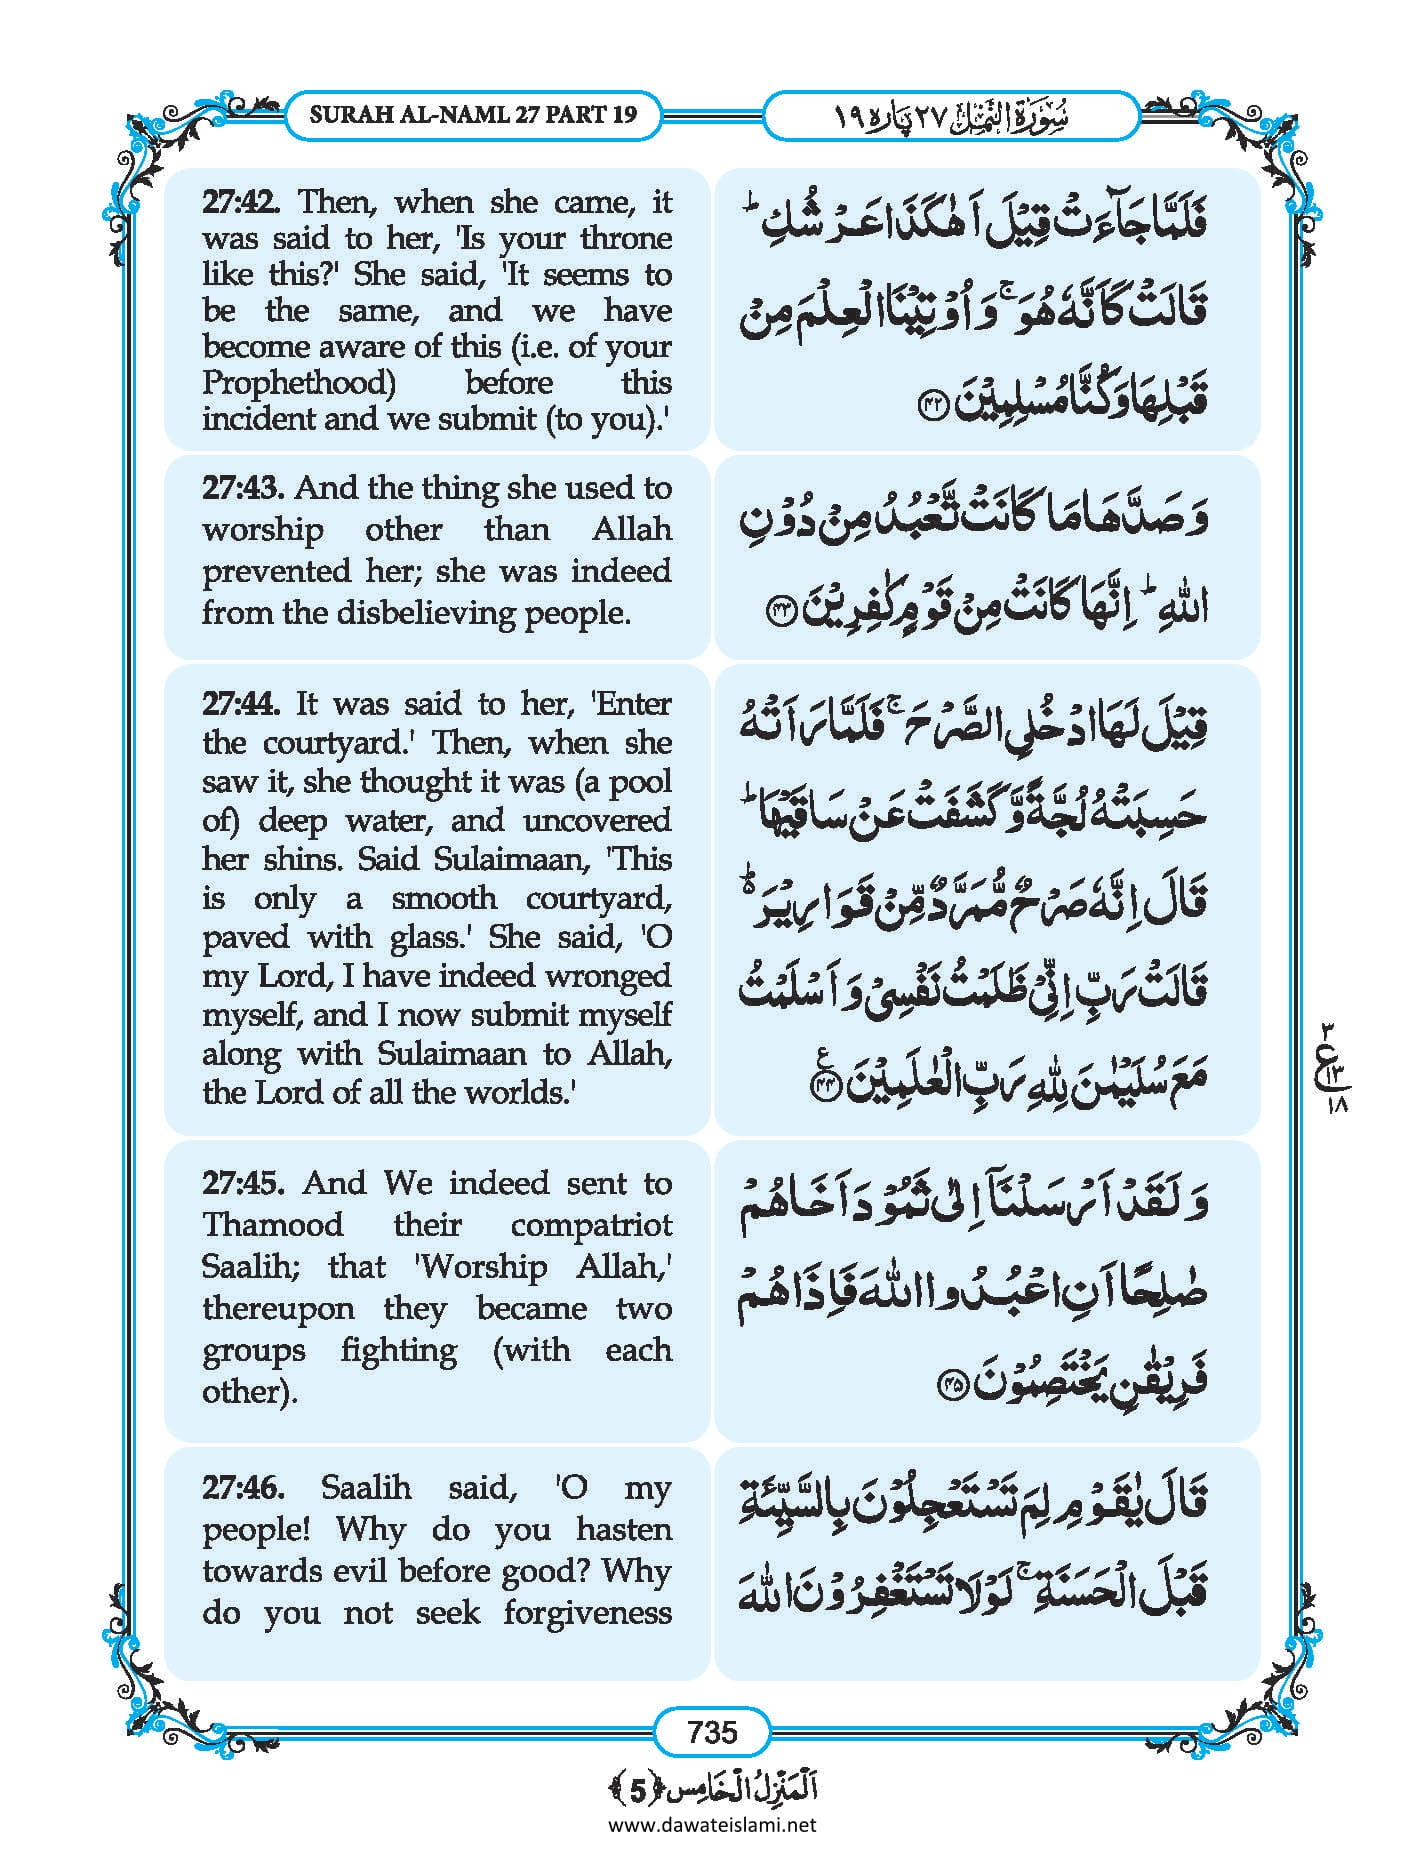 SURAH AL-NAML 27 PART 19
سُوْرَةُ النَّمْل ٢٧ پَارہ ١٩
27:42. Then, when she came, it
was said to her, 'Is your throne
like this?' She said, 'It seems to
be the same, and we have
become aware of this (i.e. of your
Prophethood) before this
incident and we submit (to you).'
فَلَمَّا جَآءَتْ قِیْلَ اَهٰكَذَا عَرْشُكِؕ
قَالَتْ كَاَنَّهٗ هُوَۚ وَ اُوْتِیْنَا الْعِلْمَ مِنْ
قَبْلِهَا وَ كُنَّا مُسْلِمِیْنَ ﴿۴۲﴾
27:43. And the thing she used to
worship other than Allah
prevented her; she was indeed
from the disbelieving people.
وَ صَدَّهَا مَا كَانَتْ تَّعْبُدُ مِنْ دُوْنِ
اللّٰهِؕ اِنَّهَا كَانَتْ مِنْ قَوْمٍ كٰفِرِیْنَ ﴿۴۳﴾
27:44. It was said to her, 'Enter
the courtyard.' Then, when she
saw it, she thought it was (a pool
of) deep water, and uncovered
her shins. Said Sulaimaan, 'This
is only a smooth courtyard,
paved with glass.' She said, 'O
my Lord, I have indeed wronged
myself, and I now submit myself
along with Sulaimaan to Allah,
the Lord of all the worlds.'
قِیْلَ لَهَا ادْخُلِی الصَّرْحَۚ فَلَمَّا رَاَتْهُ
حَسِبَتْهُ لُجَّةً وَّ كَشَفَتْ عَنْ سَاقَیْهَاؕ
قَالَ اِنَّهٗ صَرْحٌ مُّمَرَّدٌ مِّنْ قَوَارِیْرَؕ۬
قَالَتْ رَبِّ اِنِّیْ ظَلَمْتُ نَفْسِیْ وَ اَسْلَمْتُ
مَعَ سُلَیْمٰنَ لِلّٰهِ رَبِّ الْعٰلَمِیْنَ ﴿۴۴﴾ ع
٣
ع ١٣
١٨
27:45. And We indeed sent to
Thamood their compatriot
Saalih; that 'Worship Allah,'
thereupon they became two
groups fighting (with each
other).
وَ لَقَدْ اَرْسَلْنَاۤ اِلٰى ثَمُوْدَ اَخَاهُمْ
صٰلِحًا اَنِ اعْبُدُوا اللّٰهَ فَاِذَا هُمْ
فَرِیْقٰنِ یَخْتَصِمُوْنَ ﴿۴۵﴾
27:46. Saalih said, 'O my
people! Why do you hasten
towards evil before good? Why
do you not seek forgiveness
قَالَ یٰقَوْمِ لِمَ تَسْتَعْجِلُوْنَ بِالسَّیِّئَةِ
قَبْلَ الْحَسَنَةِۚ لَوْ لَا تَسْتَغْفِرُوْنَ اللّٰهَ
735
اَلْمَنْزِلُ الْخَامِس ﴿5﴾
www.dawateislami.net